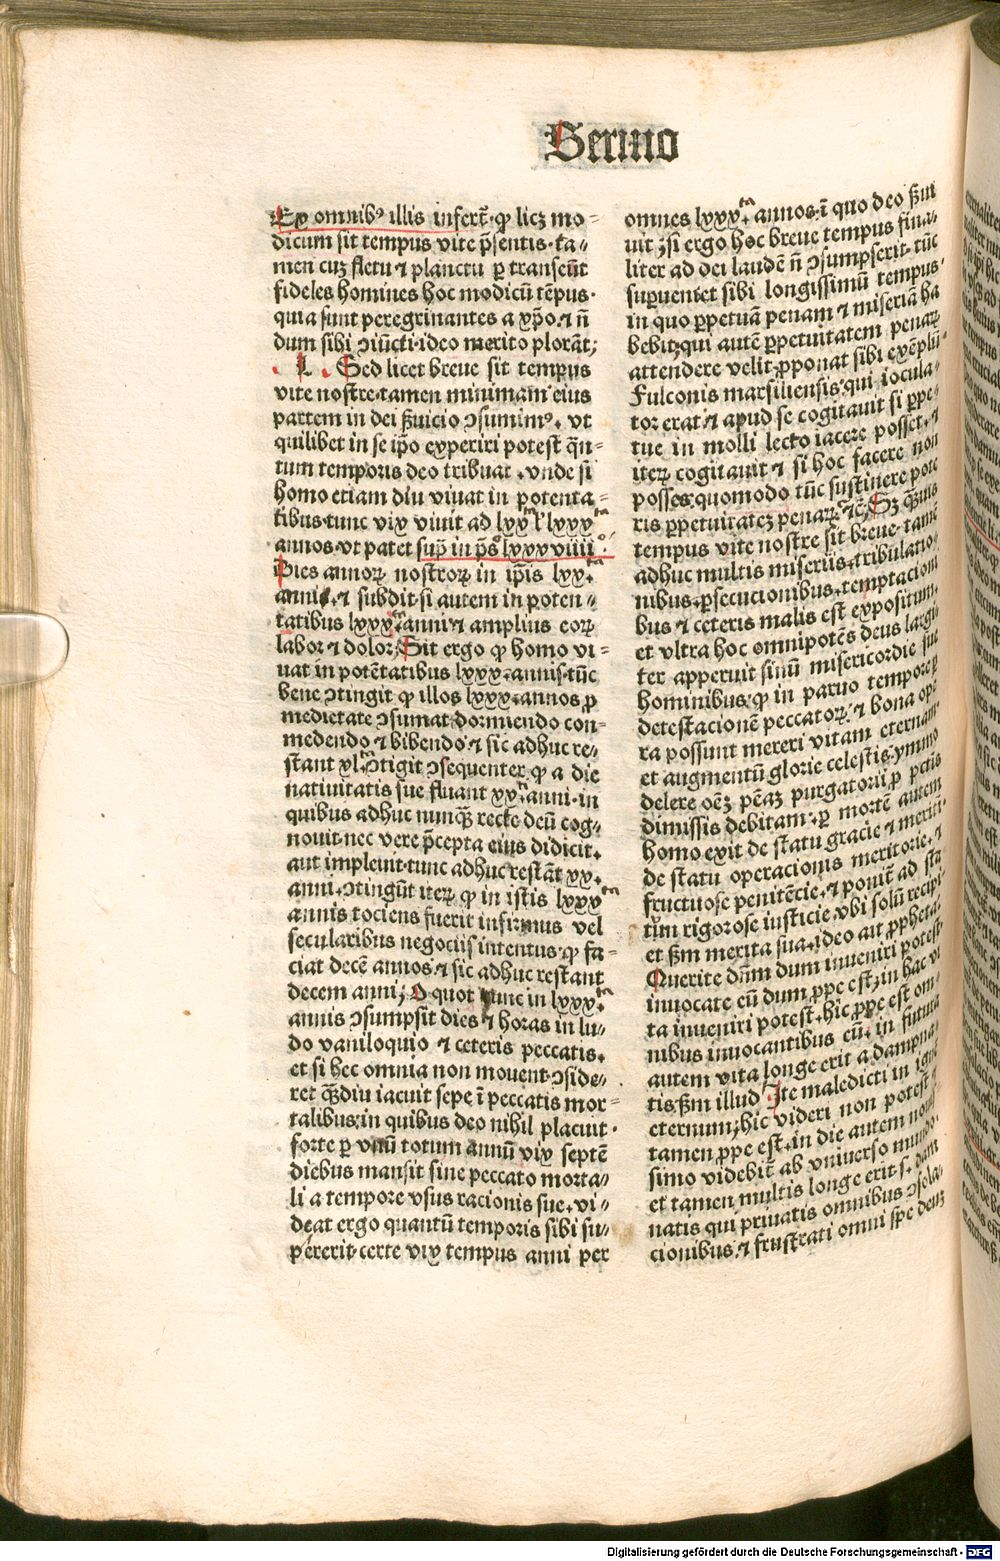 Sermo
Ex omnibꝰ illis infert᷒ ꝙ licꝫ mo⸗
dicum sit tempus vite p̄sentis·ta⸗
men cuꝫ fletu ⁊ planctu ꝑ transeūt
fideles homines hoc modicū tēpus·
quia sunt peregrinantes a xp̄o.⁊ n̄
dum sibi ↄiūcti·ideo merito plorāt;
L . Sed licet breue sit tempus
vite nostre·tamen minimam eius
partem in dei ẜuicio ↄsumimꝰ . vt
quilibet in se ip̄o experiri potest q̄n⸗
tum temporis deo tribuat . vnde si
homo etiam diu viuat in potenta⸗
tibus·tunc vix viuit ad lxx l' lxxx
annos·vt patet sup̄ in ps̄ lxxxviiii .
Dies annoꝝ nostroꝝ in ip̄is lxx .
anni . ⁊ subdit·si autem in poten⸗
tatibus lxxx . anni ⁊ amplius eoꝝ
labor ⁊ dolor; Sit ergo ꝙ homo vi⸗
uat in potētatibus lxxx . annis·tūc
bene ↄtingit ꝙ illos lxxx . annos ꝓ
medietate ↄsumat·dormiendo con⸗
medendo ⁊ bibendo ⁊ sic adhuc re⸗
stant xl . ↄtigit ↄsequenter ꝙ a die
natiuitatis sue fluant xx . anni·in
quibus adhuc nunq̄ꝫ recte deū cog⸗
nouit·nec vere p̄cepta eius didicit .
aut impleuit·tunc adhuc restāt xx .
anni . ↄtingūt iteꝝ ꝙ in istis lxxx
annis tociens fuerit infirmus vel
secularibus negociis intentus·ꝙ fa⸗
ciat decē annos·⁊ sic adhuc restant
decem anni; O quot tunc in lxxx .
annis ↄsumpsit dies ⁊ horas in lu⸗
do vaniloquio ⁊ ceteris peccatis .
et si hec omnia non mouent·ↄside⸗
ret q̄ꝫdiu iacuit sepe ī peccatis mor⸗
talibus·in quibus deo nihil placuit·
forte ꝑ vnū totum annū vix septē
diebus mansit sine peccato morta⸗
li a tempore vsus racionis sue . vi⸗
deat ergo quantū temporis sibi su⸗
pererit·certe vix tempus anni per
omnes lxxx . annos·ī quo deo ẜui
uit ;si ergo hoc breue tempus fina⸗
liter ad dei laudē n̄ ↄsumpserit·tūc
suꝑueniet sibi longissimū tempus·
in quo ꝑpetuā penam ⁊ miseriā ha
bebit;qui autē ꝑpetuitatem penaꝝ
attendere velit·ꝓponat sibi exēplū
Fulconis marsiliensis·qui iocula⸗
tor erat·⁊ apud se cogitauit si ꝑpe⸗
tue in molli lecto iacere posset . ⁊
iteꝝ cogitauit ⁊ si hoc facere non
posses·quomodo tūc sustinere pote
ris ꝑpetuitateꝫ penaꝝ ⁊c̄; Sꝫ q̄ꝫuis
tempus vite nostre sit breue·tamē
adhuc multis miseriis·tribulatio⸗
nibus·ꝑsecucionibus·temptacioni
bus ⁊ ceteris malis est expositum.
et vltra hoc omnipotēs deus largi
ter apperuit sinū misericordie sue
hominibus·ꝙ in paruo tempore ꝑ
detestacionē peccatoꝝ·⁊ bona ope
ra possunt mereri vitam eternam·
et augmentū glorie celestis·ymmo
delere oēꝫ pēaꝫ purgatorii ꝓ pctis
dimissis debitam·ꝑ mortē autem
homo exit de statu gracie ⁊ meriti·
de statu operacionis meritorie . ⁊
fructuose penitēcie . ⁊ ponit᷒ ad sta
tūm rigorose iusticie·vbi solū recipi⸗
et ẜm merita sua·ideo ait ꝓpheta·
Querite dn̄m dum inueniri potest·
inuocate eū dum ꝓpe est;in hac vi
ta inueniri potest . hic ꝓpe est om⸗
nibus inuocantibus eū . in futura
autem vita longe erit a dampna⸗
tis·ẜm illud Ite maledicti in ignē
eternum;hic videri non potest ⁊
tamen ꝓpe est . in die autem nouis
simo videbit᷒ ab vniuerso mundo·
et tamen multis longe erit s. dam
natis qui priuatis omnibus ↄsola⸗
cionibus . ⁊ frustrati omni spe deuꝫ
Digitalisierung gefördert durch die Deutsche Forschungsgemeinschaft - DFG